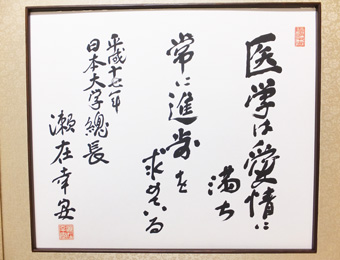 医学は愛情に
満ち
常に進歩を
求めている
平成十七年
日本大学總長
瀬在幸安